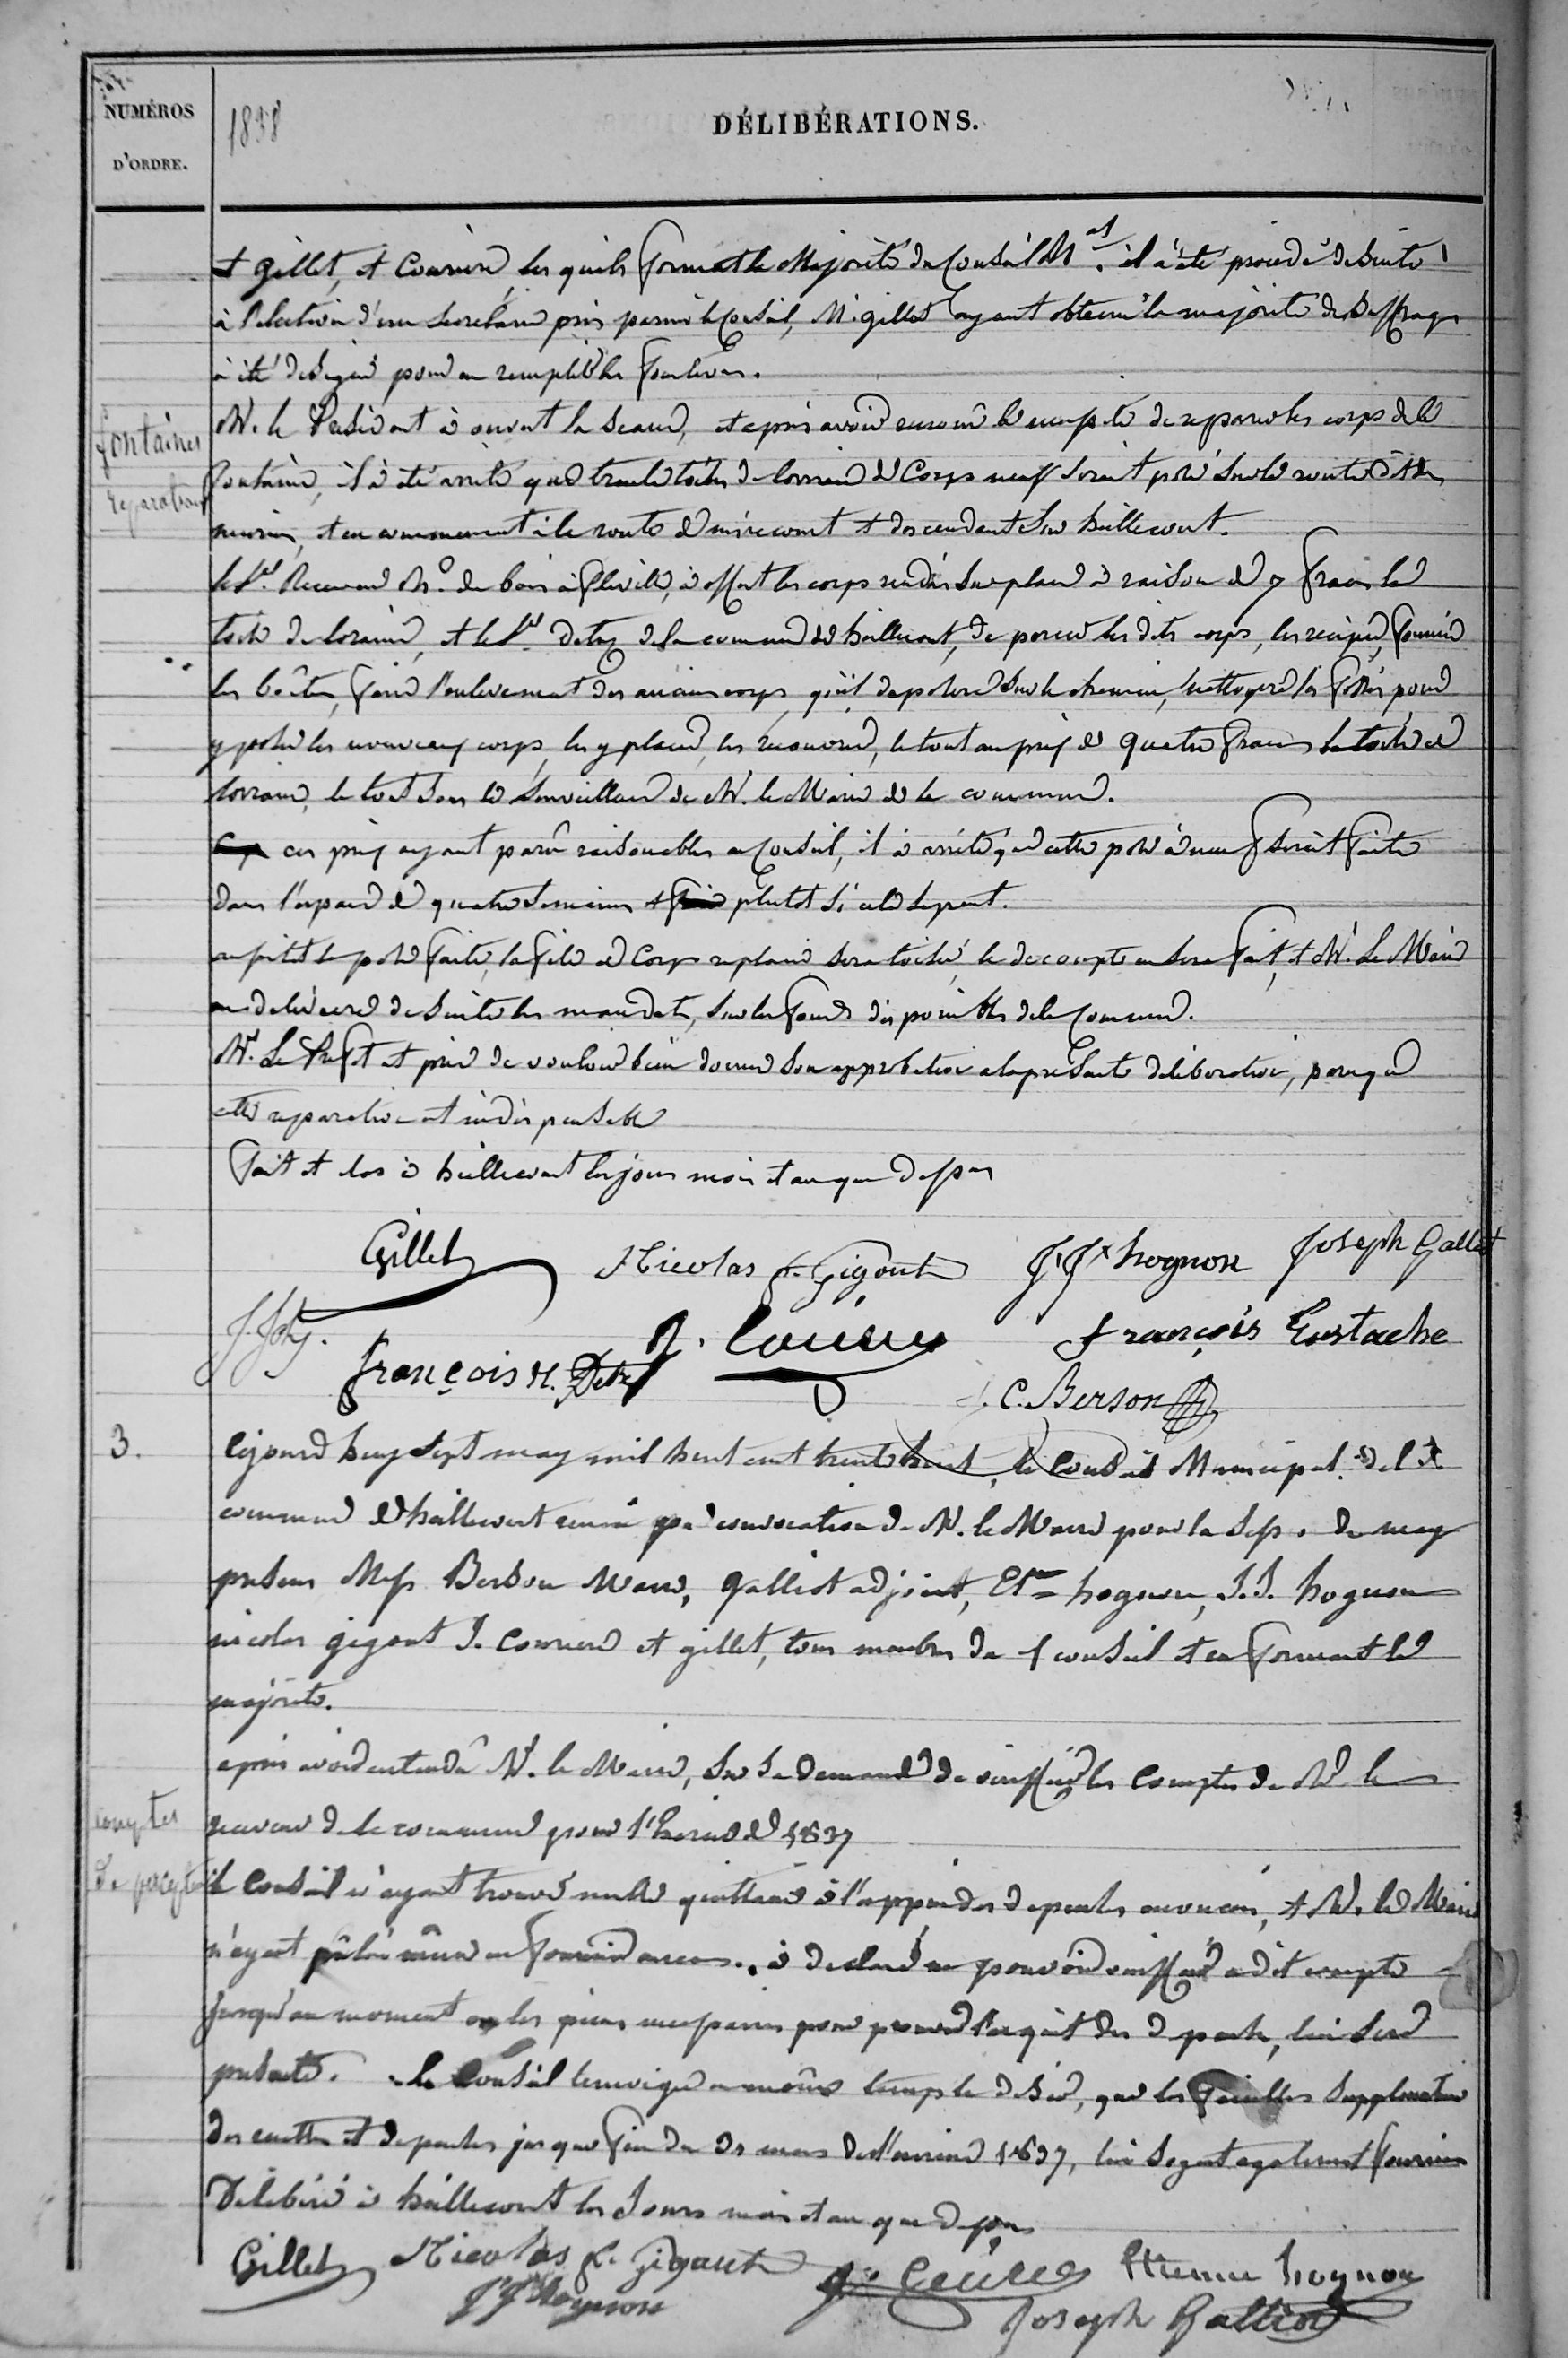 NUMÉROS
D'ORDRE.
1838
DÉLIBÉRATIONS.
et gillet, et Courier, les quels formant la Majorité du Conseil Mal. il à été procedé de Suite
à l'election d'un Secretaire pris parmi le Conseil, M. gillet ayant obtenu la majorité des Suffrages
à été designé pour en remplir les fonctions.
fontaines
reparations
M. le President à ouvert la Seance, et après avoir reconnu la necessité de reparer les corps de la
fontaine, il à été arrêté que trente toises de lorraine de Corps neuf serait posé sur la route
et en commencement à la route de mirecourt et descendant sur haillecourt.
le Sr. Md. de bois à fleville, à offert les corps rendus sur place à raison de 7 francs la
toise de lorraine, et le Sr. Detz de la commune de haillecourt, de percer les dits corps, les fournir
les boîtes, faire l'enlevement des anciens corps, qu'il deposera sur le chemin, nettoyera les fossés pour
y poser les nouveaux corps, les y placer, les recouvrir, le tout au prix de quatre francs la toise de
lorraine, le tout sous la Surveillance de M. le Maire de la commune.
ces prix ayant parû raisonnables au Conseil, il à arrêté que cette pose à neuf serait faite
dans l'espace de quatre Semaines et plutot si cela se peut.
aussitôt la pose faite, la file de Corps replacée sera toisée, le decompte en sera fait, et M. Le Maire
en delivrera de Suite les mandats, sur les fonds disponibles de la Commune.
M. Le Prefet est prié de vouloir bien donner son approbation a la presente deliberation, parceque
cette reparation est indispensable
fait et clos à haillecourt les jour mois et an que dessus
Gillet Nicolas f. Gigout J. Jh hognon Joseph Galliot
François N. Detz J. Courier françois Eustache
C. Berson
3.
Cejourd huy Sept may mil huit cent trente huit, le Conseil Municipal de la
commune de haillecourt reuni par convocation de M. le Maire pour la Sess. de may
presens Mess. Berson Maire, Galliot adjoint, Etne hognon, J. J. hognon
nicolas gigout J. Courier et gillet, tous membres du conseil et en formant la
majorité.
comptes
du percepteur
après avoir entendu M. le Maire, sur sa demande de verifier les Comptes de M. le
receveur de la commune pour l'Exercice de 1837
le Conseil n'ayant trouvé nulle quittance à l'appui des depenses enoncées, et M. le Maire
n'ayant pû lui même en fournir aucune, à declaré ne pouvoir verifier ledit compte
jusqu'au moment ou les pieces necessaires pour prouver l'acquit des depenses, lui sera
presenté. le Conseil temoigne en même temps le desir, que les feuilles Supplementaires
des recettes et depenses jusque fin du 31 mars de l'exercice 1837, lui soyent egalement fournies
Deliberé à haillecourt les Jours mois et an que dessus
Gillet Nicolas f. Gigout J. Courier Etienne hognon
J Jh hognon Joseph Galliot